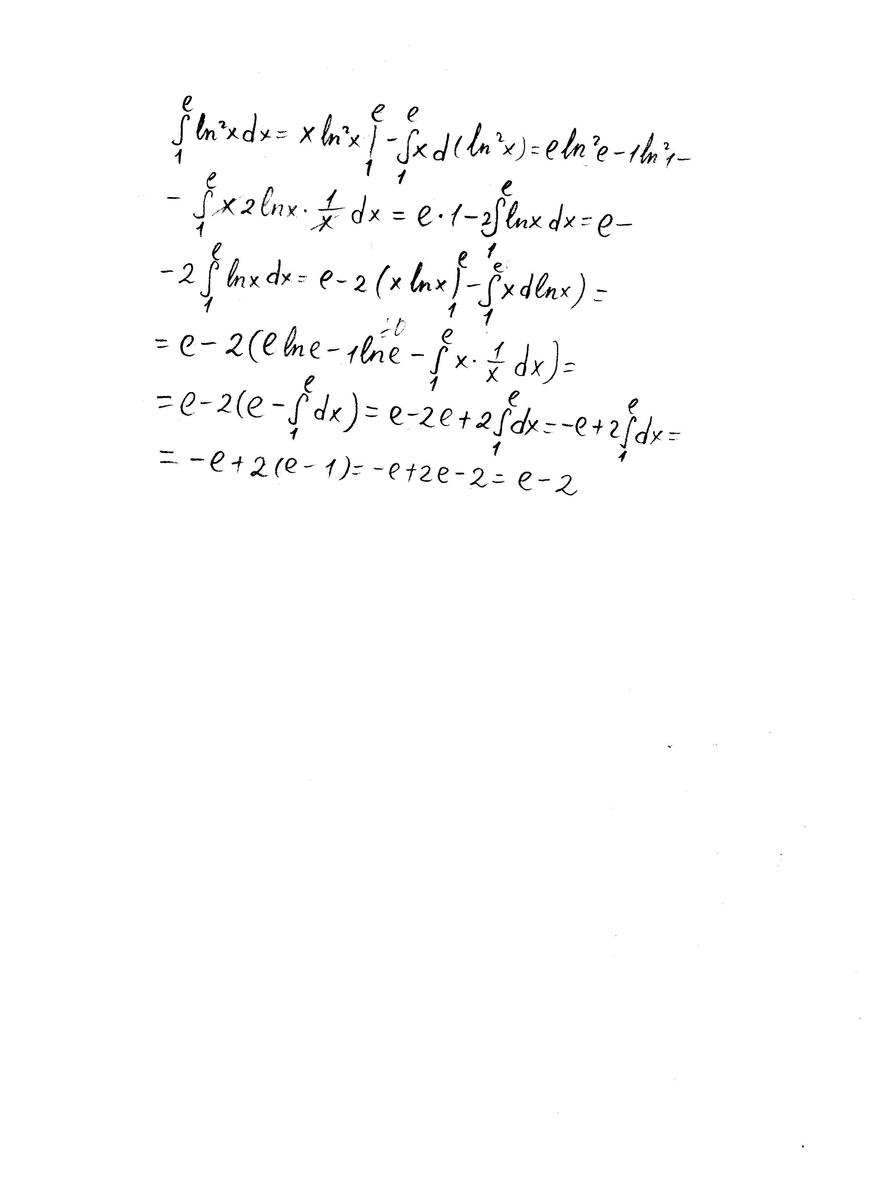 ∫₁ᵉ ln²x dx = x ln²x |₁ᵉ - ∫₁ᵉ x d(ln²x) = e ln²e - 1 ln²1 -
- ∫₁ᵉ x 2 ln x · 1/x dx = e · 1 - 2∫₁ᵉ ln x dx = e -
- 2 ∫₁ᵉ ln x dx = e - 2 (x ln x |₁ᵉ - ∫₁ᵉ x d ln x) =
= e - 2(e ln e - 1 ln e - ∫₁ᵉ x · 1/x dx) =
= e - 2(e - ∫₁ᵉ dx) = e - 2e + 2∫₁ᵉ dx = -e + 2∫₁ᵉ dx =
= -e + 2(e - 1) = -e + 2e - 2 = e - 2